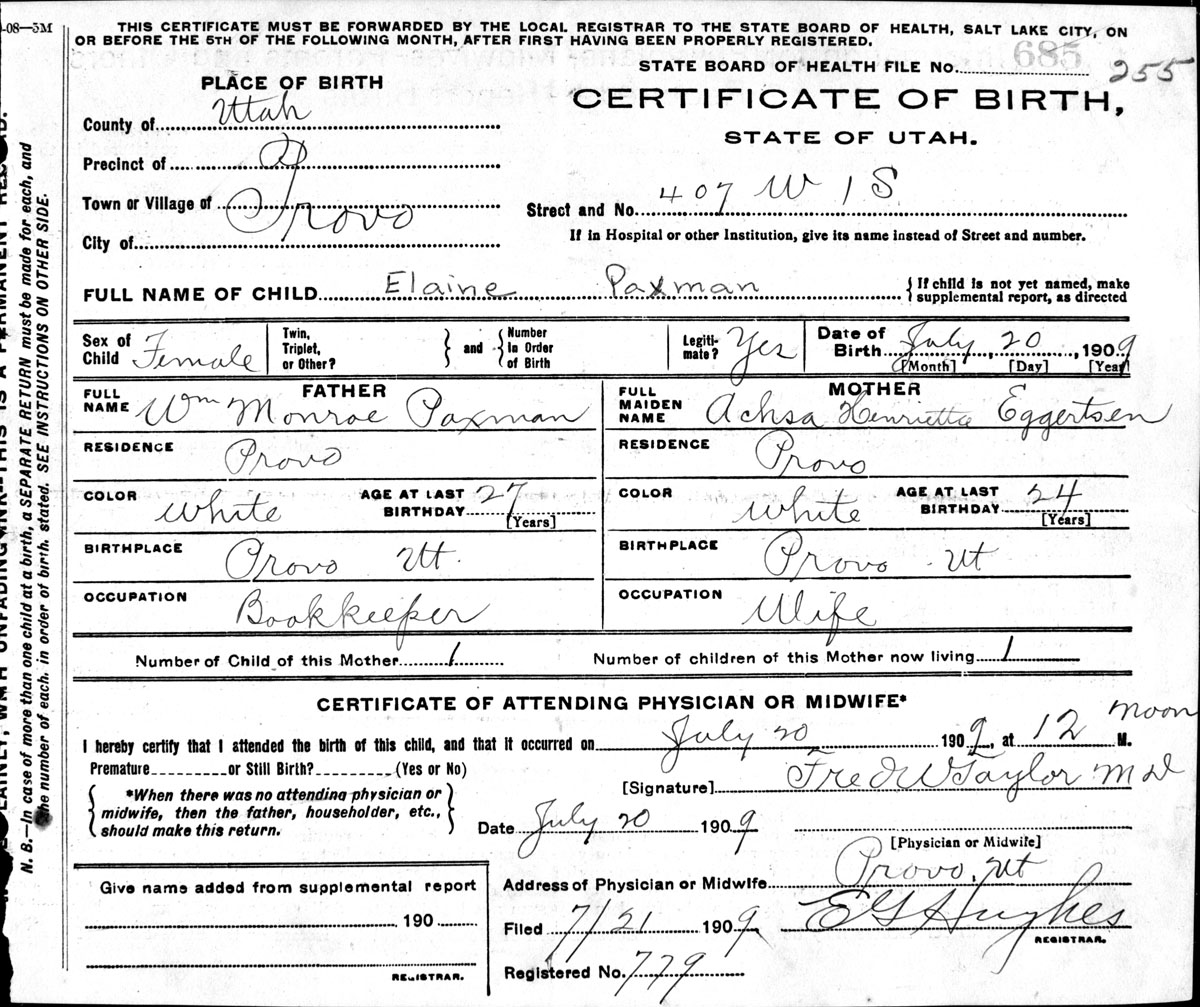 -08—5M
THIS CERTIFICATE MUST BE FORWARDED BY THE LOCAL REGISTRAR TO THE STATE BOARD OF HEALTH, SALT LAKE CITY, ON
OR BEFORE THE 5TH OF THE FOLLOWING MONTH, AFTER FIRST HAVING BEEN PROPERLY REGISTERED.
STATE BOARD OF HEALTH FILE No. 685 255
PLACE OF BIRTH
CERTIFICATE OF BIRTH,
STATE OF UTAH.
County of Utah
Precinct of
Town or Village of Provo
City of
Street and No. 407 W 1 S
If in Hospital or other Institution, give its name instead of Street and number.
FULL NAME OF CHILD Elaine Paxman { If child is not yet named, make supplemental report, as directed
Sex of Child Female
Twin, Triplet, or Other? } and { Number In Order of Birth
Legiti-mate? Yes
Date of Birth July 20, 1909
[Month] [Day] [Year]
FATHER
FULL NAME Wm Monroe Paxman
MOTHER
FULL MAIDEN NAME Achsa Henrietta Eggertsen
RESIDENCE Provo
RESIDENCE Provo
COLOR White AGE AT LAST BIRTHDAY 27 [Years]
COLOR White AGE AT LAST BIRTHDAY 24 [Years]
BIRTHPLACE Provo Ut.
BIRTHPLACE Provo Ut
OCCUPATION Bookkeeper
OCCUPATION Wife
Number of Child of this Mother 1
Number of children of this Mother now living 1
CERTIFICATE OF ATTENDING PHYSICIAN OR MIDWIFE*
I hereby certify that I attended the birth of this child, and that it occurred on July 20 1909, at 12 Noon M.
Premature or Still Birth? (Yes or No)
[Signature] Fred W Taylor M D
{ *When there was no attending physician or midwife, then the father, householder, etc., should make this return. }
Date July 20 1909
[Physician or Midwife]
Give name added from supplemental report
190
REGISTRAR.
Address of Physician or Midwife Provo, Ut
Filed 7/21 1909 E G Hughes
REGISTRAR.
Registered No. 779
UNFADING INK—THIS IS A PERMANENT
N. B.—In case of more than one child at a birth, a SEPARATE RETURN must be made for each, and
the number of each, in order of birth, stated. SEE INSTRUCTIONS ON OTHER SIDE.